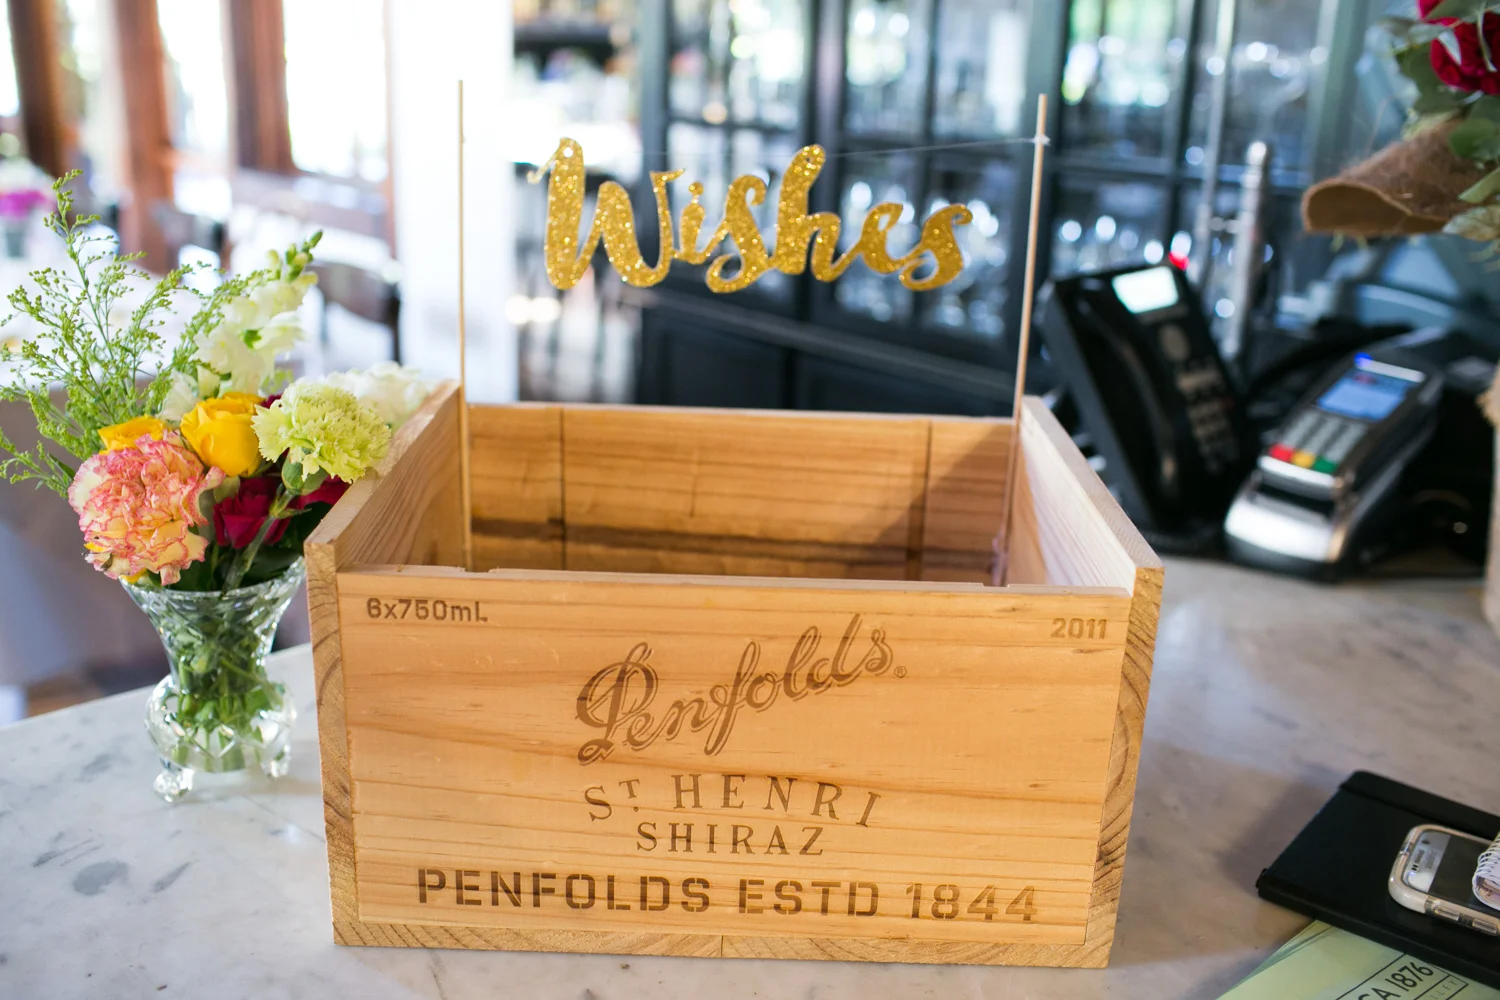 Wishes
6x750mL
2011
Penfolds®
ST. HENRI
SHIRAZ
PENFOLDS ESTD 1844
CA 1876